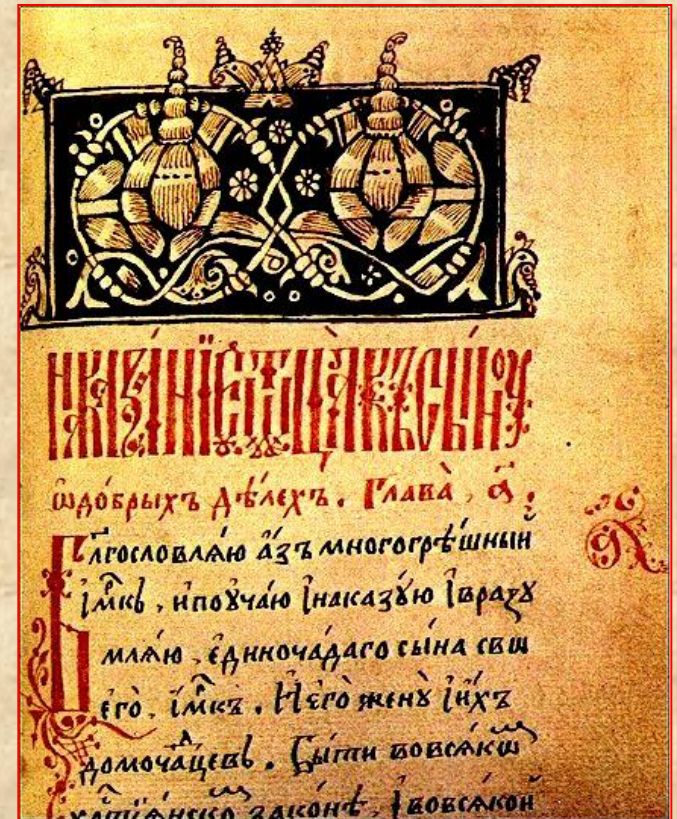 Наказаніе ѿ отца къ сыноу
ѡ добрыхъ дѣлехъ. Глава̀, а҃.
Блгословлѧ́ю а́зъ многогрѣ́шныи
і҆м҃къ, и поꙋча́ю і҆ наказꙋ́ю і҆ вразꙋ
млѧ́ю, є҆диноча́даго сы́на сво
его̀, і҆м҃къ. И҆ его̀ женꙋ̀ і҆ и҆́хъ
домоча́дцевъ. Бы́ти во всѧ́ко
христїѧ́нско зако́нѣ, І҆ во всѧ́кой